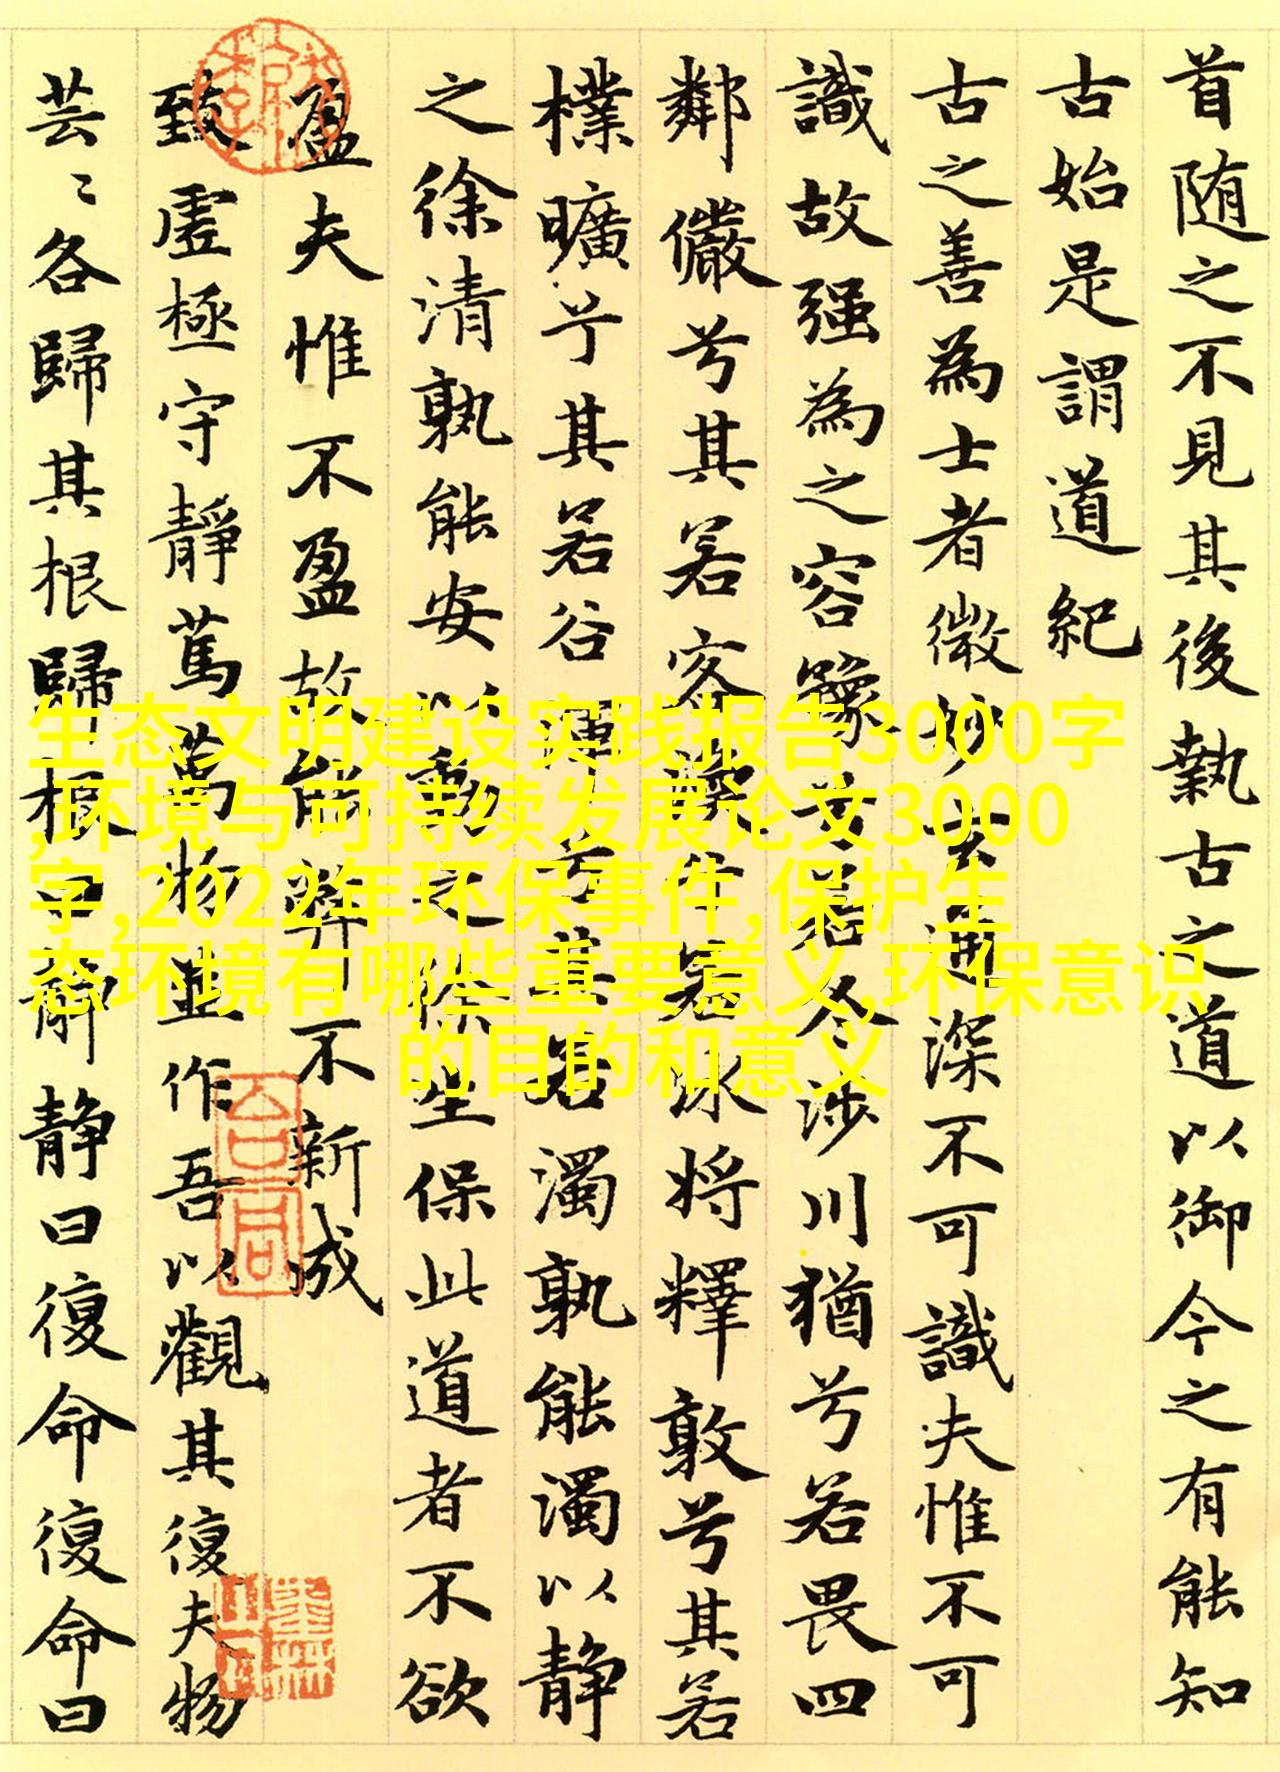 首随之不見其後執古之道以御今之有能知
古始是謂道紀
古之善為士者微妙玄通深不可識夫惟不可
識故强為之容豫兮若冬涉川猶兮若畏四
鄰儼兮其若客渙兮若冰将釋敦兮其若
樸曠兮其若谷渾兮其若濁孰能濁以静
之徐清孰能安以動之徐生保此道者不欲
盈夫惟不盈故能弊不新成
致虛極守靜篤萬物並作吾以觀其復夫物
芸〻各歸其根歸根曰靜静曰復命復命曰
生态文明建设实践报告3000字
,环境与可持续发展论文3000
字,2022年环保事件,保护生
态环境有哪些重要意义,环保意识
的目的和意义